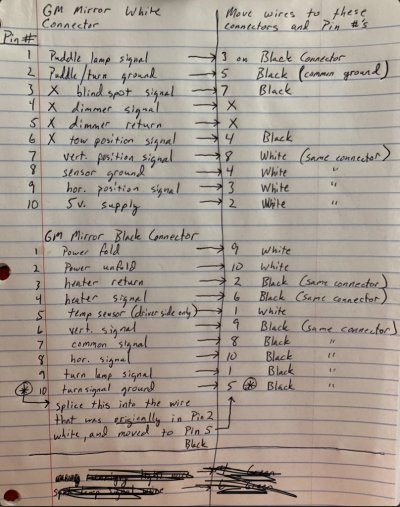 GM Mirror White Connector
Move wires to these connectors and Pin #'s
Pin #
1 Puddle lamp signal → 3 on Black Connector
2 Puddle/turn ground → 5 Black (common ground)
3 X blind spot signal → 7 Black
4 X dimmer signal → X
5 X dimmer return → X
6 X tow position signal → 4 Black
7 vert. position signal → 8 White (same connector)
8 sensor ground → 4 White "
9 hor. position signal → 3 White "
10 5v. supply → 2 White "
GM Mirror Black Connector
1 Power fold → 9 White
2 Power unfold → 10 White
3 heater return → 2 Black (same connector)
4 heater signal → 6 Black (same connector)
5 temp sensor (driver side only) → 1 White
6 vert. signal → 9 Black (same connector)
7 common signal → 8 Black "
8 hor. signal → 10 Black "
9 turn lamp signal → 1 Black "
* 10 turn signal ground → 5 * Black "
splice this into the wire
that was originally in Pin 2
white, and moved to Pin 5
Black